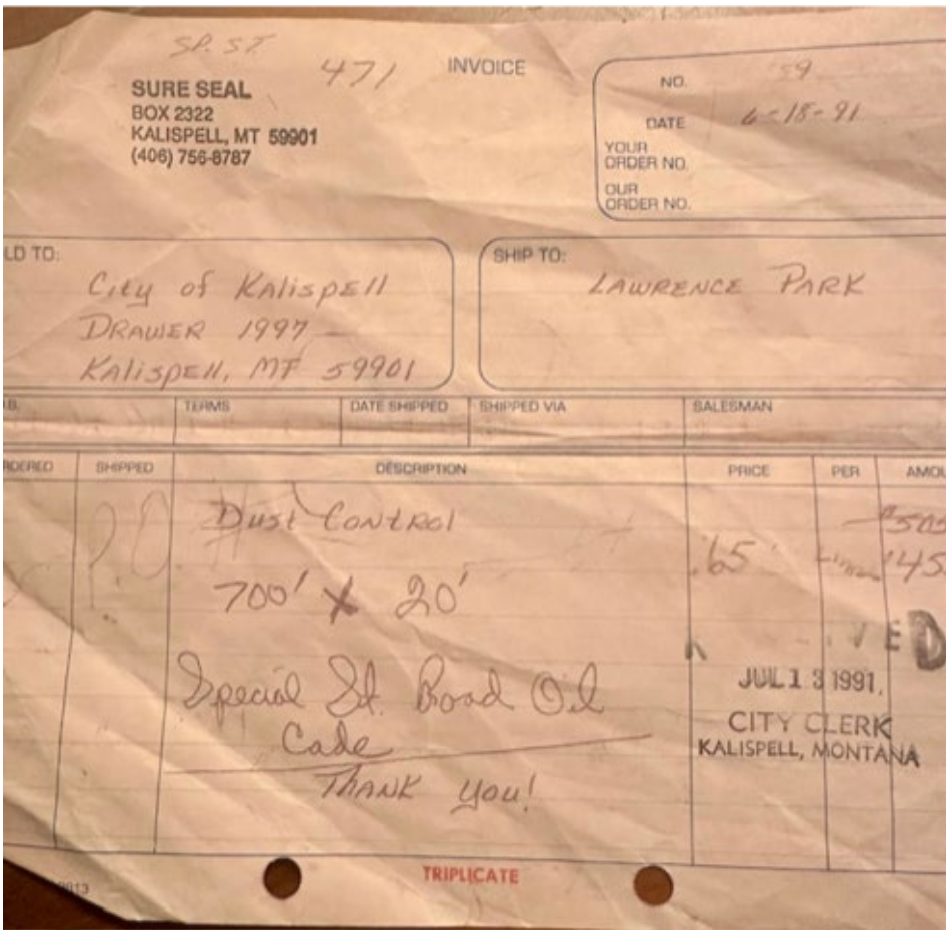 SP. ST.
471
INVOICE
SURE SEAL
BOX 2322
KALISPELL, MT 59901
(406) 756-8787
NO. 59
DATE 6-18-91
YOUR
ORDER NO.
OUR
ORDER NO.
LD TO:
City of Kalispell
DRAWER 1997
Kalispell, MT 59901
SHIP TO:
LAWRENCE PARK
.B. TERMS DATE SHIPPED SHIPPED VIA SALESMAN
RDERED SHIPPED DESCRIPTION PRICE PER AMOU
Dust Control
.65 145
700' X 20'
VED
Special St. Road Oil
Code
JUL 13 1991
CITY CLERK
KALISPELL, MONTANA
THANK you!
TRIPLICATE